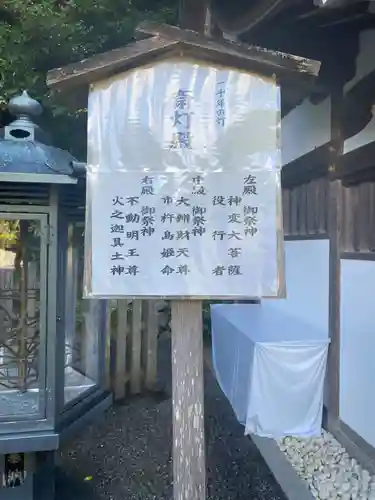 一千年の灯
灯殿
左殿 御祭神
神変大菩薩
役行者
中殿 御祭神
大辨財天尊
市杵島姫命
右殿 御祭神
不動明王尊
火之迦具土神